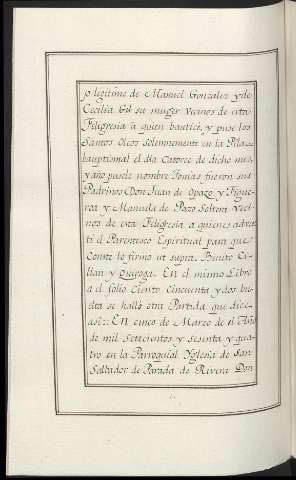 jo legitimo de Manuel Gonzalez y de
Cecilia Gil su muger vecinos de esta
Filigresia a quien bauticé, y puse los
Santos Oleos solemnemente en la Pila
bauptismal el dia Catorce de dicho mes,
y año pusele nombre Tomás, fueron sus
Padrinos Don Juan de Opazo y Figue-
roa y Manuela de Pazo Soltera veci-
nos de esta Filigresia a quienes adver-
ti el Parentesco Espiritual para que
Conste lo firmo ut supra. Benito Ci-
lian y Quiroga. En el mismo Libro
a el folio Ciento Cincuenta y dos bu-
elta se halló otra Partida que dice
asi:: En cinco de Marzo de el Año
de mil Setecientos y sesenta y qua-
tro en la Parroquial Yglesia de San
Salbador de Parada de Rivera Don